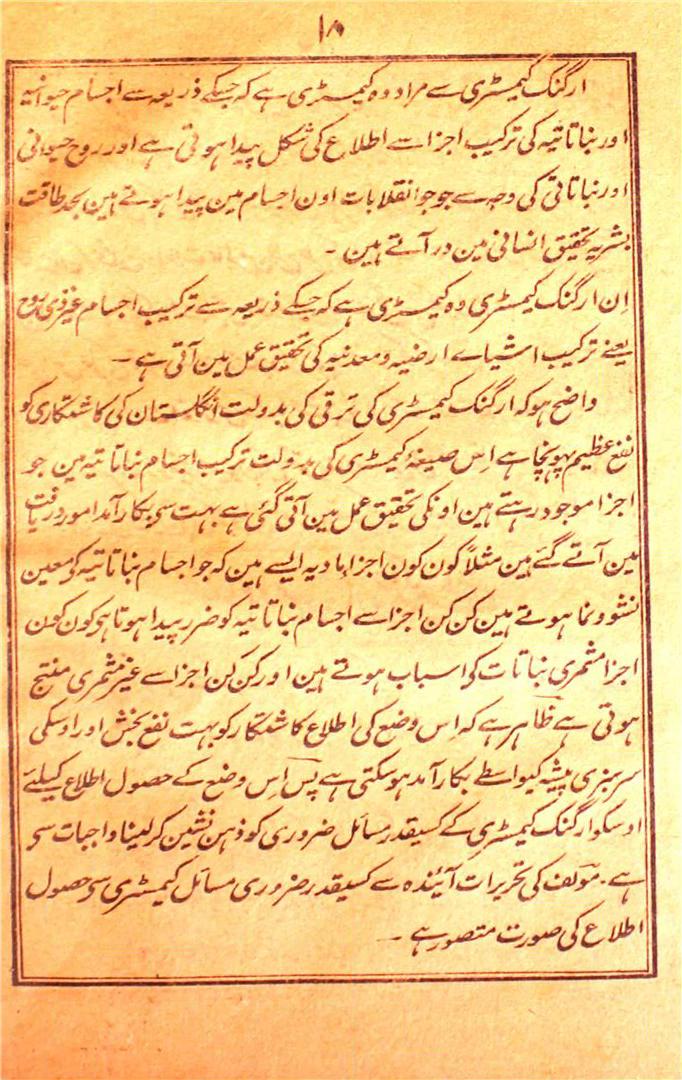 ۱۸
ارگنک کیمسٹری سے مراد وہ کیمسٹری ہے کہ جسکے ذریعہ سے اجسام حیوانیہ
اور نباتاتیہ کی ترکیب اجزا سے اطلاع کی شکل پیدا ہوتی ہے اور روح حیوانی
اور نباتاتی کی وجہ سے جو جو انقلابات اون اجسام مین پیدا ہوتے ہین بحد طاقت
بشریہ تحقیق انسانی مین در آتے ہین -
اِن ارگنک کیمسٹری وہ کیمسٹری ہے کہ جسکے ذریعہ سے ترکیب اجسام غیر ذی روح
یعنے ترکیب اشیاے ارضیہ و معدنیہ کی تحقیق عمل مین آتی ہے -
واضح ہو کہ ارگنک کیمسٹری کی ترقی کی بدولت انگلستان کی کاشتکاری کو
نفع عظیم پہونچا ہے اِس صیغۂ کیمسٹری کی بدولت ترکیب اجسام نباتاتیہ مین جو
اجزا موجود رہتے ہین اونکی تحقیق عمل مین آتی گئی ہے بہت سی بکار آمد امور دریافت
مین آتے گئے ہین مثلاً کون کون اجزا مادیہ ایسے ہین کہ جو اجسام نباتاتیہ کو معین
نشو و نما ہوتے ہین کن کن اجزا سے اجسام نباتاتیہ کو ضرر پیدا ہوتا ہی کون کون
اجزا مثمری نباتات کو اسباب ہوتے ہین اور کن کن اجزا سے غیر مثمری منتج
ہوتی ہے ظاہر ہے کہ اس وضع کی اطلاع کاشتکار کو بہت نفع بخش اور اوسکی
سرسبزی پیشہ کیواسطے بکار آمد ہو سکتی ہے پس اِس وضع کے حصول اطلاع کیلئے
اوسکو ارگنک کیمسٹری کے کسیقدر مسائل ضروری کو ذہن نشین کر لینا واجبات سی
ہے۔ مؤلف کی تحریرات آیندہ سے کسیقدر ضروری مسائل کیمسٹری سی حصول
اطلاع کی صورت متصور ہے -